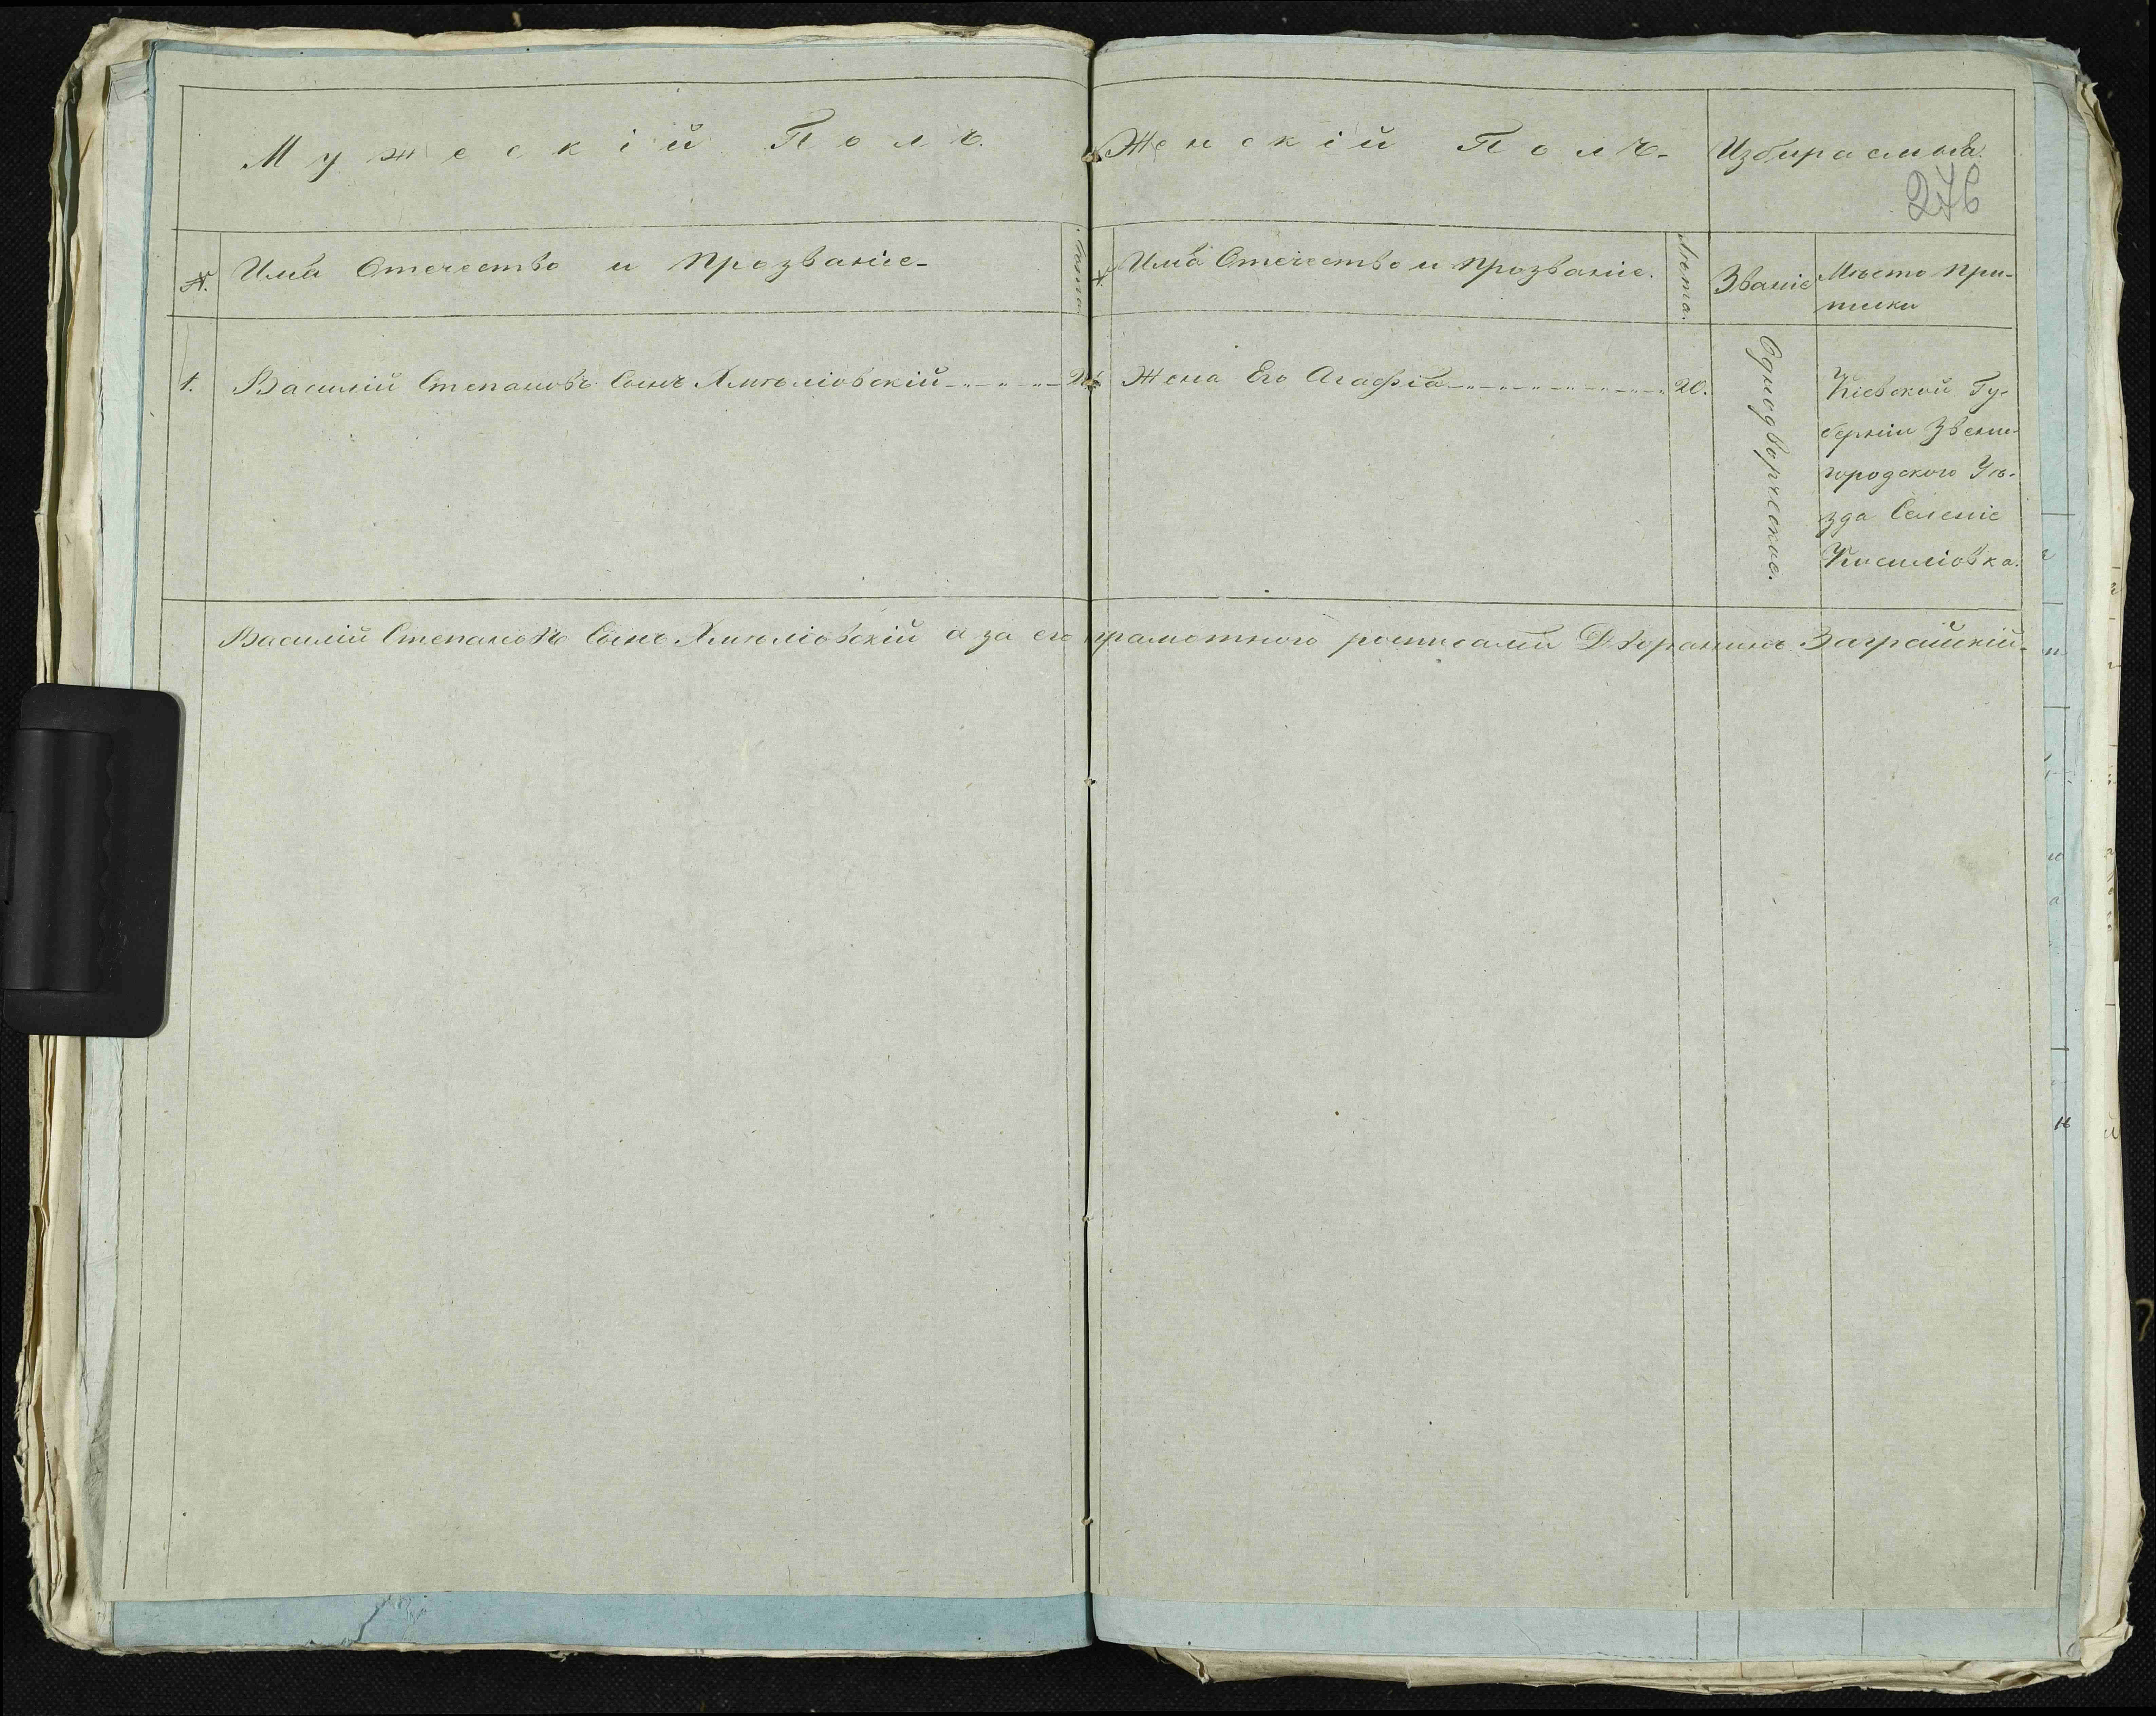 Мужескій Полъ.
Женскій Полъ.
Избираемыя.
276
№.
Имя Отечество и Прозваніе
Лѣта
№
Имя Отечество и Прозваніе.
Лѣта.
Званіе
Мѣсто при-
писки
1.
Василій Степановъ Сынъ Хмѣліовскій
Жена Его Агафія
20.
Однодворческое.
Кіевской Гу-
берніи Звени-
городского Уѣ-
зда Селеніе
Кисиліовка.
Василій Степановъ Сынъ Хмѣліовскій а за его Дворянинъ